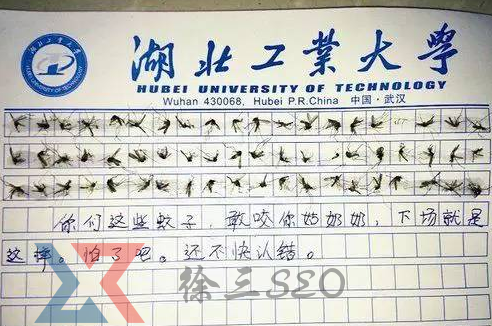 湖北工業大學
HUBEI UNIVERSITY OF TECHNOLOGY
Wuhan 430068, Hubei P.R.China 中国·武汉
你们这些蚊子，敢咬你姑奶奶，下场就是
这样。怕了吧。还不快认错。
徐三SEO